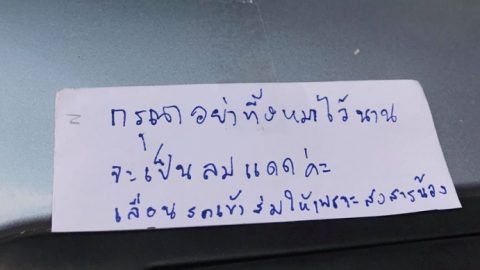 กรุณาอย่าทิ้งหมาไว้นาน
จะเป็นลมแดดค่ะ
เลื่อนรถเข้าร่มให้เพราะสงสารน้อง